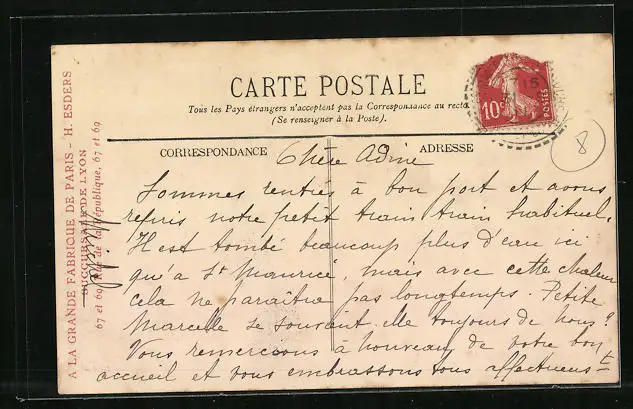 CARTE POSTALE
Tous les Pays étrangers n'acceptent pas la Correspondance au recto.
(Se renseigner à la Poste).
10c POSTES
8
CORRESPONDANCE
ADRESSE
Chère Adine
Sommes rentrés à bon port et avons
repris notre petit train train habituel.
Il est tombé beaucoup plus d'eau ici
qu'à St Maurice, mais avec cette chaleur
cela ne paraîtra pas longtemps. Petite
Marcelle se souvient elle toujours de nous?
Vous remercions à nouveau de votre bon
accueil et vous embrassons tous affectueust
A LA GRANDE FABRIQUE DE PARIS - H. ESDERS
SUCCURSALE DE LYON
67 et 69, Rue de la République, 67 et 69